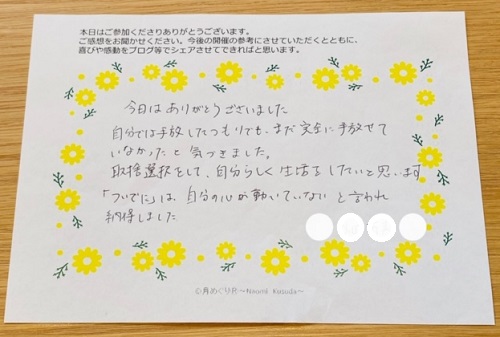 本日はご参加くださりありがとうございます。
ご感想をお聞かせください。今後の開催の参考にさせていただくとともに、
喜びや感動をブログ等でシェアさせてできればと思います。
今日はありがとうございました
自分では手放したつもりでも、まだ完全に手放せて
いなかったと気づきました。
取捨選択をして、自分らしく生活をしたいと思います
「ついでに」は、自分の心が動いていない と言われ
納得しました
～Naomi Kusuda～